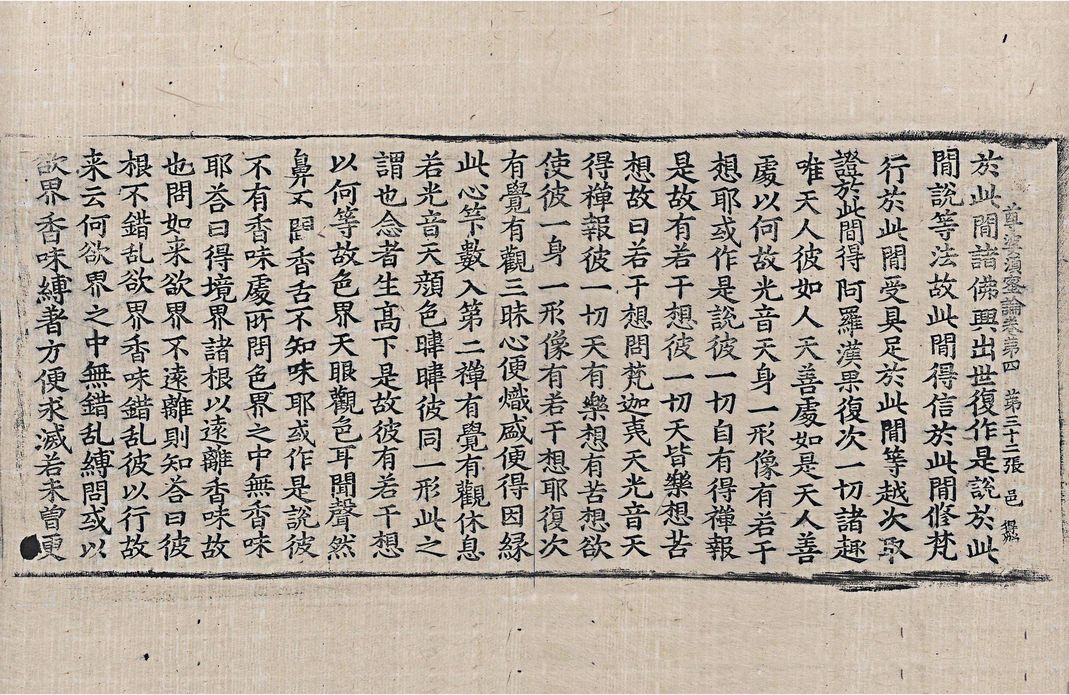 尊婆須蜜論卷苐四　苐三十二張　邑
於此閒諸佛興出世復作是說於此
閒說等法故此閒得信於此閒修梵
行於此閒受具足於此閒等越次取
證於此閒得阿羅漢果復次一切諸趣
唯天人彼如人天善處如是天人善
處以何故光音天身一形像有若干
想耶或作是說彼一切自有得禪報
是故有若干想彼一切天皆樂想苦
想故曰若干想問梵迦夷天光音天
得禪報彼一切天有樂想有苦想欲
使彼一身一形像有若干想耶復次
有覺有觀三昧心便熾盛便得因緣
此心竿數入第二禪有覺有觀休息
若光音天顏色暐暐彼同一形此之
謂也念者生高下是故彼有若干想
以何等故色界天眼觀色耳聞聲然
鼻不聞香舌不知味耶或作是說彼
不有香味處所問色界之中無香味
耶答曰得境界諸根以遠離香味故
也問如来欲界不遠離則知答曰彼
根不錯乱欲界香味錯乱彼以行故
来云何欲界之中無錯乱縛問或以
欲界香味縛者方便求滅若未曾更